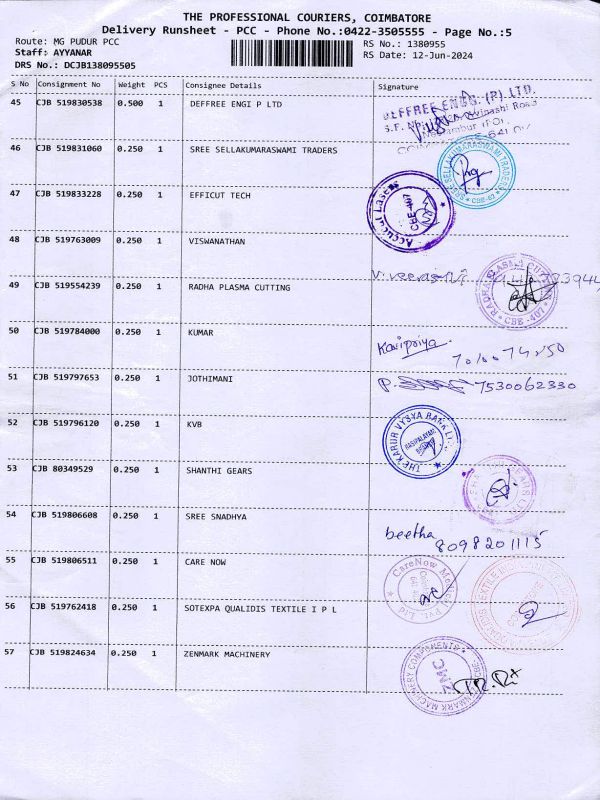 THE PROFESSIONAL COURIERS, COIMBATORE
Delivery Runsheet - PCC - Phone No.:0422-3505555 - Page No.:5
Route: MG PUDUR PCC
RS No.: 1380955
Staff: AYYANAR
RS Date: 12-Jun-2024
DRS No.: DCJB138095505
S No Consignment No Weight PCS Consignee Details Signature
45 CJB 519830538 0.500 1 DEFFREE ENGI P LTD
DEFFREE ENGG. (P) LTD.
46 CJB 519831060 0.250 1 SREE SELLAKUMARASWAMI TRADERS
SREE SELLAKUMARASWAMI TRADERS
47 CJB 519833228 0.250 1 EFFICUT TECH
Accucut Lasers
CBE-407
48 CJB 519763009 0.250 1 VISWANATHAN
49 CJB 519554239 0.250 1 RADHA PLASMA CUTTING
RADHA PLASMA CUTTING
CBE-407
50 CJB 519784000 0.250 1 KUMAR
Kavipriya
51 CJB 519797653 0.250 1 JOTHIMANI
P. 7530062330
52 CJB 519796120 0.250 1 KVB
THE KARUR VYSYA BANK LTD.
53 CJB 80349529 0.250 1 SHANTHI GEARS
54 CJB 519806608 0.250 1 SREE SNADHYA
beetha
8098201115
55 CJB 519806511 0.250 1 CARE NOW
CareNow Medical Pvt. Ltd
56 CJB 519762418 0.250 1 SOTEXPA QUALIDIS TEXTILE I P L
57 CJB 519824634 0.250 1 ZENMARK MACHINERY
ZENMARK MACHINERY COMPONENTS
ZMC